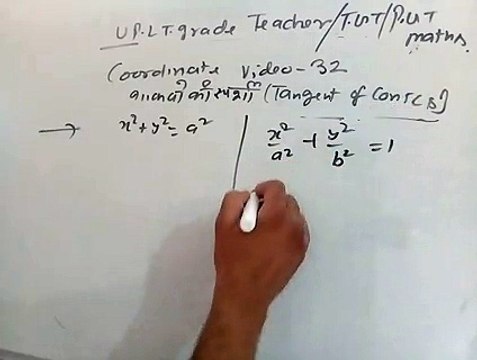 U.P.L.T. grade Teacher/T.G.T/P.G.T
maths.
Coordinate video-32
शांकवों की स्पर्शी (Tangent of Conics)
→ x²+y²=a²
x²/a² + y²/b² = 1